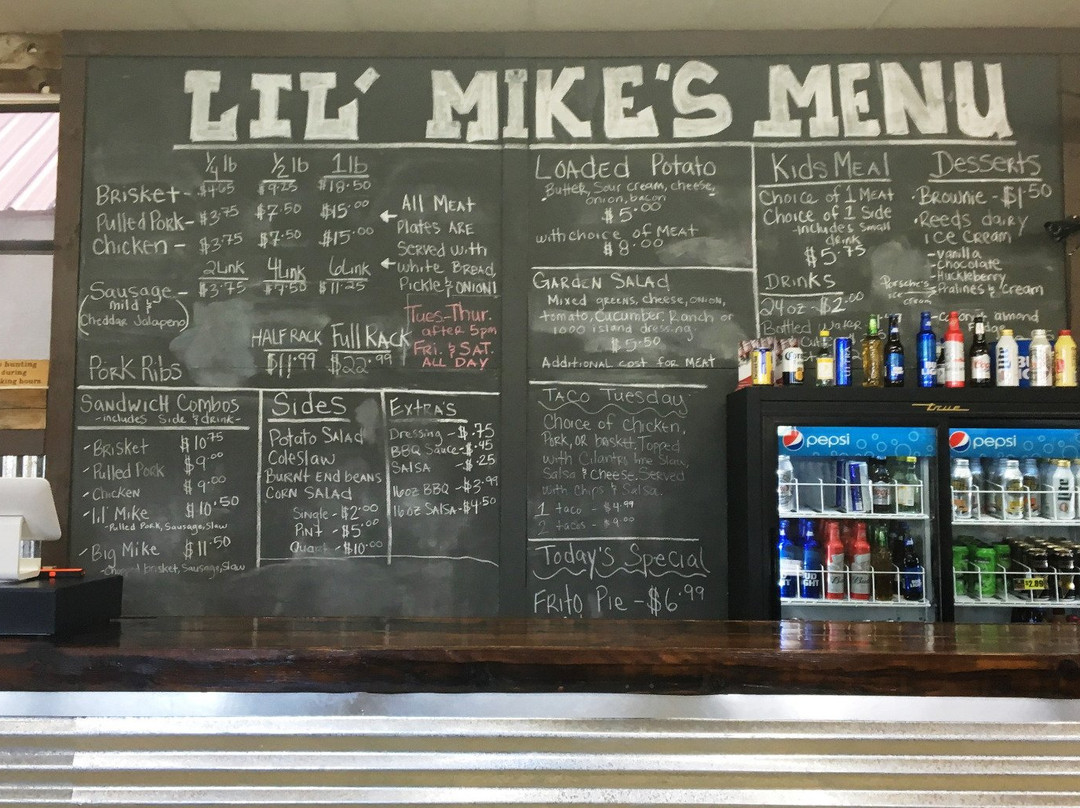 LIL' MIKE'S MENU
1/4 lb 1/2 lb 1 lb
Brisket - $4.65 $9.25 $18.50
Pulled Pork - $3.75 $7.50 $15.00
Chicken - $3.75 $7.50 $15.00
2 Link 4 Link 6 Link
Sausage - $3.75 $7.50 $11.25
mild &
Cheddar Jalapeno
All Meat
Plates Are
Served with
White Bread,
Pickle & Onion!
Half Rack Full Rack
Pork Ribs $11.99 $22.99
Tues-Thur.
after 5pm
Fri. & Sat.
All Day
Sandwich Combos
-includes Side & drink-
- Brisket $10.75
- Pulled Pork $9.00
- Chicken $9.00
- lil' Mike $10.50
-Pulled Pork, Sausage, Slaw
- Big Mike $11.50
brisket, Sausage, Slaw
Sides
Potato Salad
Coleslaw
Burnt End Beans
Corn Salad
Single - $2.00
Pint - $5.00
Quart - $10.00
Extra's
Dressing - $.75
BBQ Sauce - $.45
Salsa - $.25
16oz BBQ - $3.99
16oz Salsa - $4.50
Loaded Potato
Butter, Sour cream, cheese,
onion, bacon
$5.00
with choice of Meat
$8.00
Garden Salad
Mixed greens, cheese, onion,
tomato, Cucumber, Ranch or
1000 island dressing.
$5.50
Additional cost for Meat
Taco Tuesday
Choice of chicken,
Pork, or brisket, Topped
with Cilantro lime Slaw,
Salsa & Cheese. Served
with Chips & Salsa.
1 taco - $4.99
2 tacos - $9.00
Today's Special
Frito Pie - $6.99
Kids Meal
Choice of 1 Meat
Choice of 1 Side
-includes Small
drink
$5.75
Drinks
24oz - $2.00
Bottled Water
Desserts
• Brownie - $1.50
• Reeds dairy
Ice Cream
- vanilla
- Chocolate
- Huckleberry
- Pralines & Cream
almond
Fudge
hunting
during
king hours
true
pepsi
pepsi
BUD
LIGHT
$2.89